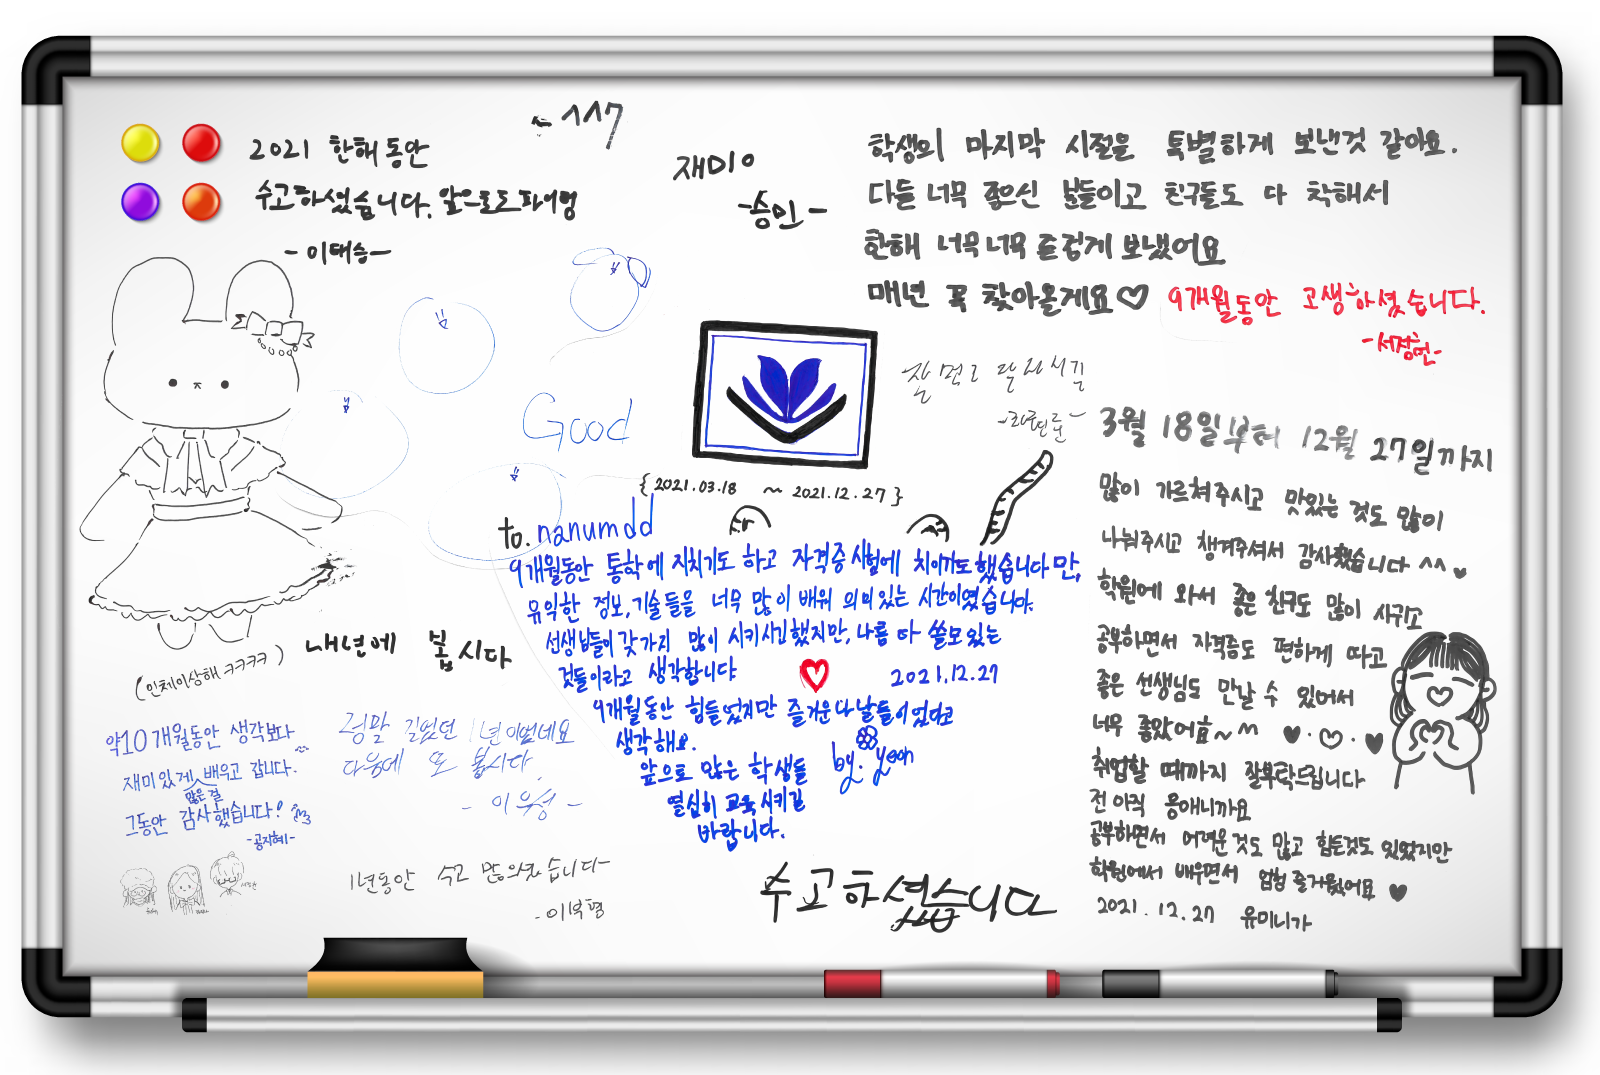 2021 한해 동안
수고하셨습니다. 앞으로도 파이팅
- 이태승 -
ㅅㅅㄱ
재미ㅇ
-승민-
학생의 마지막 시절을 특별하게 보낸것 같아요.
다들 너무 좋으신 분들이고 친구들도 다 착해서
한해 너무너무 즐겁게 보냈어요
매년 꼭 찾아올게요♡
9개월동안 고생하셨습니다.
-서경현-
Good
잘 먹고 달려시길
{ 2021.03.18 ~ 2021.12.27 }
to. nanumdd
9개월동안 통학에 지치기도 하고 자격증 시험에 치이기도 했습니다만,
유익한 정보, 기술들을 너무 많이 배워 의미있는 시간이였습니다.
선생님들이 갖가지 많이 시키시긴 했지만, 나름 다 쓸모있는
것들이라고 생각합니다
2021.12.27
9개월동안 힘들었지만 즐거운 나날들이었다고
생각해요.
앞으로 많은 학생들
열심히 교육시키길
바랍니다.
by. yeon
3월 18일부터 12월 27일까지
많이 가르쳐주시고 맛있는 것도 많이
나눠주시고 챙겨주셔서 감사했습니다 ^^ ♥
학원에 와서 좋은 친구도 많이 사귀고
공부하면서 자격증도 편하게 따고
좋은 선생님도 만날 수 있어서
너무 좋았어효~^^ ♥·♡·♥
취업할 때까지 잘부탁드립니다
전 아직 응애니까요
공부하면서 어려운것도 많고 힘든것도 있었지만
학원에서 배우면서 엄청 즐거웠어요 ♥
2021. 12. 27 유미니가
내년에 봅시다
(인체이상해 ㅋㅋㅋㅋ)
약10개월동안 생각보다
재미있게 많은걸 배우고 갑니다.
그동안 감사했습니다!
-공지혜-
정말 길었던 1년이었네요
다음에 또 봅시다.
- 이유성 -
1년동안 수고 많으셨습니다-
-이부평
수고하셨습니다